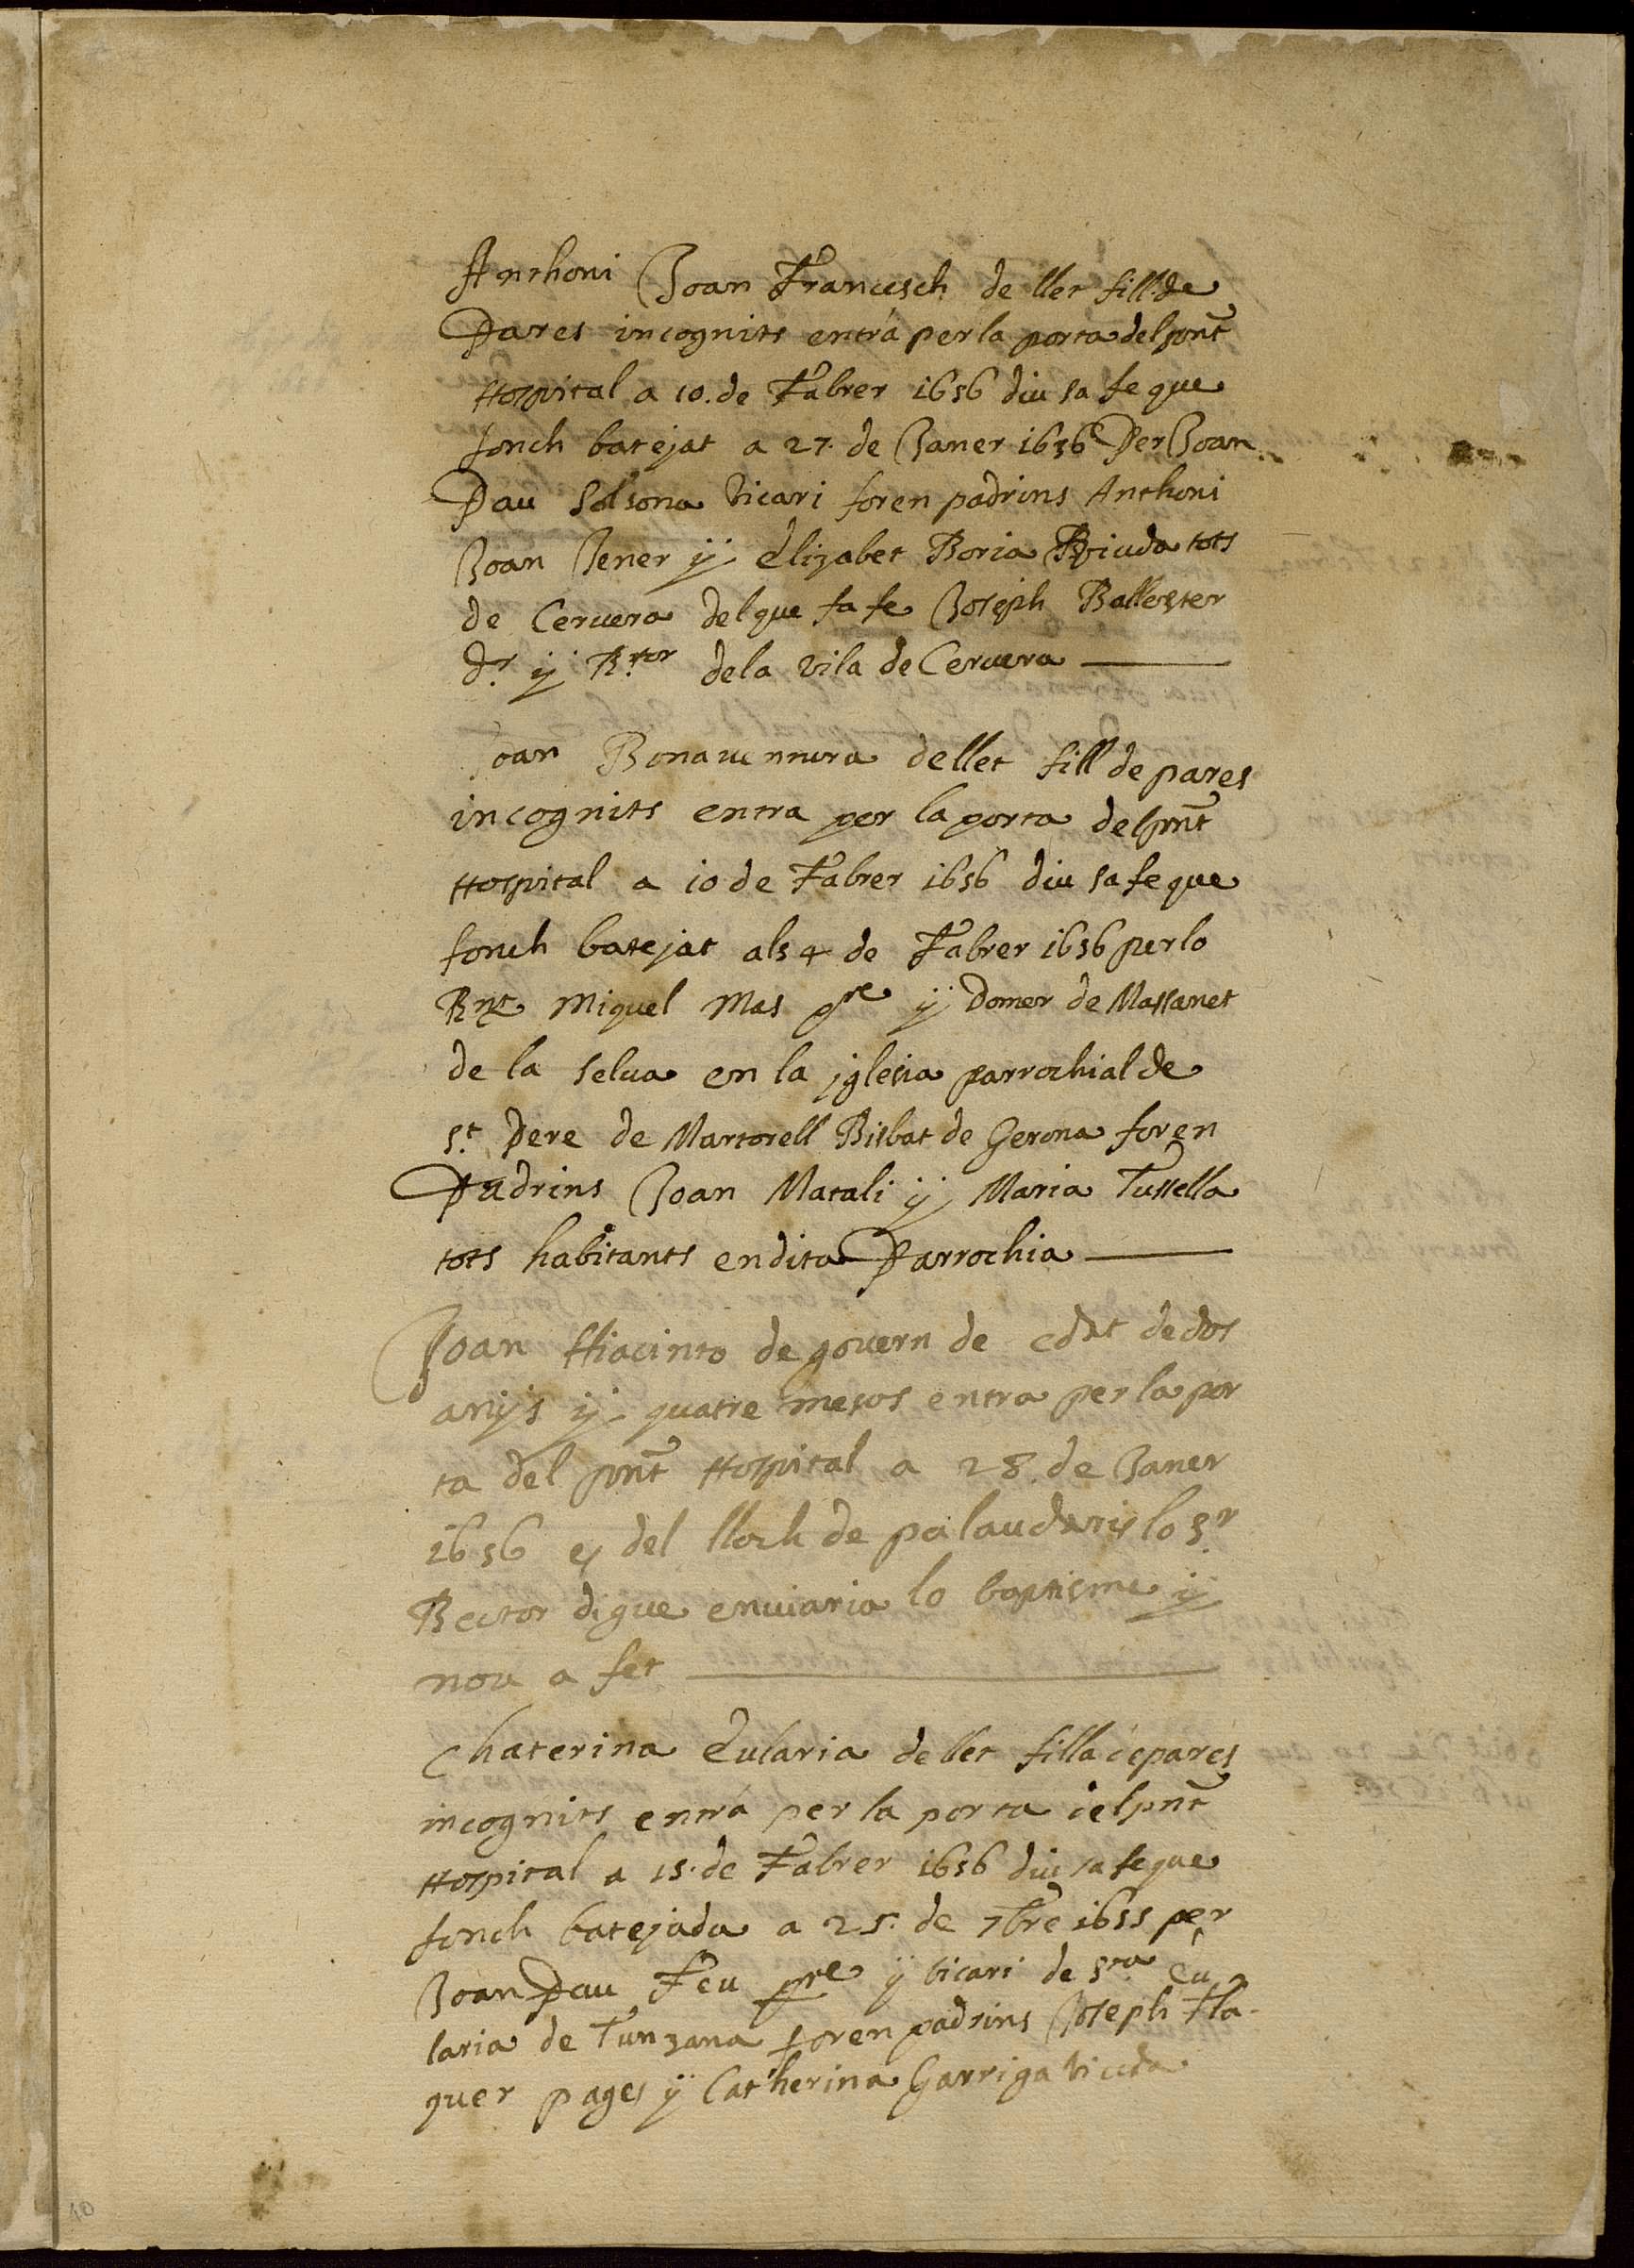 Anthoni Joan Francesch de llet fill de
Pares incognits entrà per la porta del pnt
Hospital a 10. de Fabrer 1656 diu sa fe que
fonch batejat a 27. de Janer 1656 Per Joan
Pau Solsona Vicari foren padrins Anthoni
Joan Jener ÿ Elizabet Boria Viuda tots
de Cervera del que fa fe Joseph Ballester
Dr. y Rtor. de la Vila de Cervera
Joan Bonaventura de llet fill de pares
incognits entra per la porta del pnt
Hospital a 10 de Fabrer 1656 diu sa fe que
fonch batejat als 4 de Fabrer 1656 per lo
Rnt Miquel Mas pre ÿ Domer de Massanet
de la Selva en la jglesia parrochial de
St. Pere de Martorell Bisbat de Gerona foren
Padrins Joan Matali ÿ Maria Tussella
tots habitants en dita Parrochia
Joan Hiacinto de govern de edat de dos
anÿs ÿ quatre mesos entra per la por
ta del pnt Hospital a 28. de Janer
1656 es del lloch de palaudaris lo Sr.
Rector digue enviaria lo baptisme ÿ
nou a fet
Chaterina Eularia de llet filla de pares
incognits entrà per la porta del pnt
Hospital a 15. de Fabrer 1656 diu sa fe que
fonch batejada a 25. de 7bre 1655 per
Joan Pau Feu pre ÿ vicari de Sta. Eu
laria de Tunzana foren padrins Joseph Fla-
quer pages ÿ Catherina Garriga Viuda
10